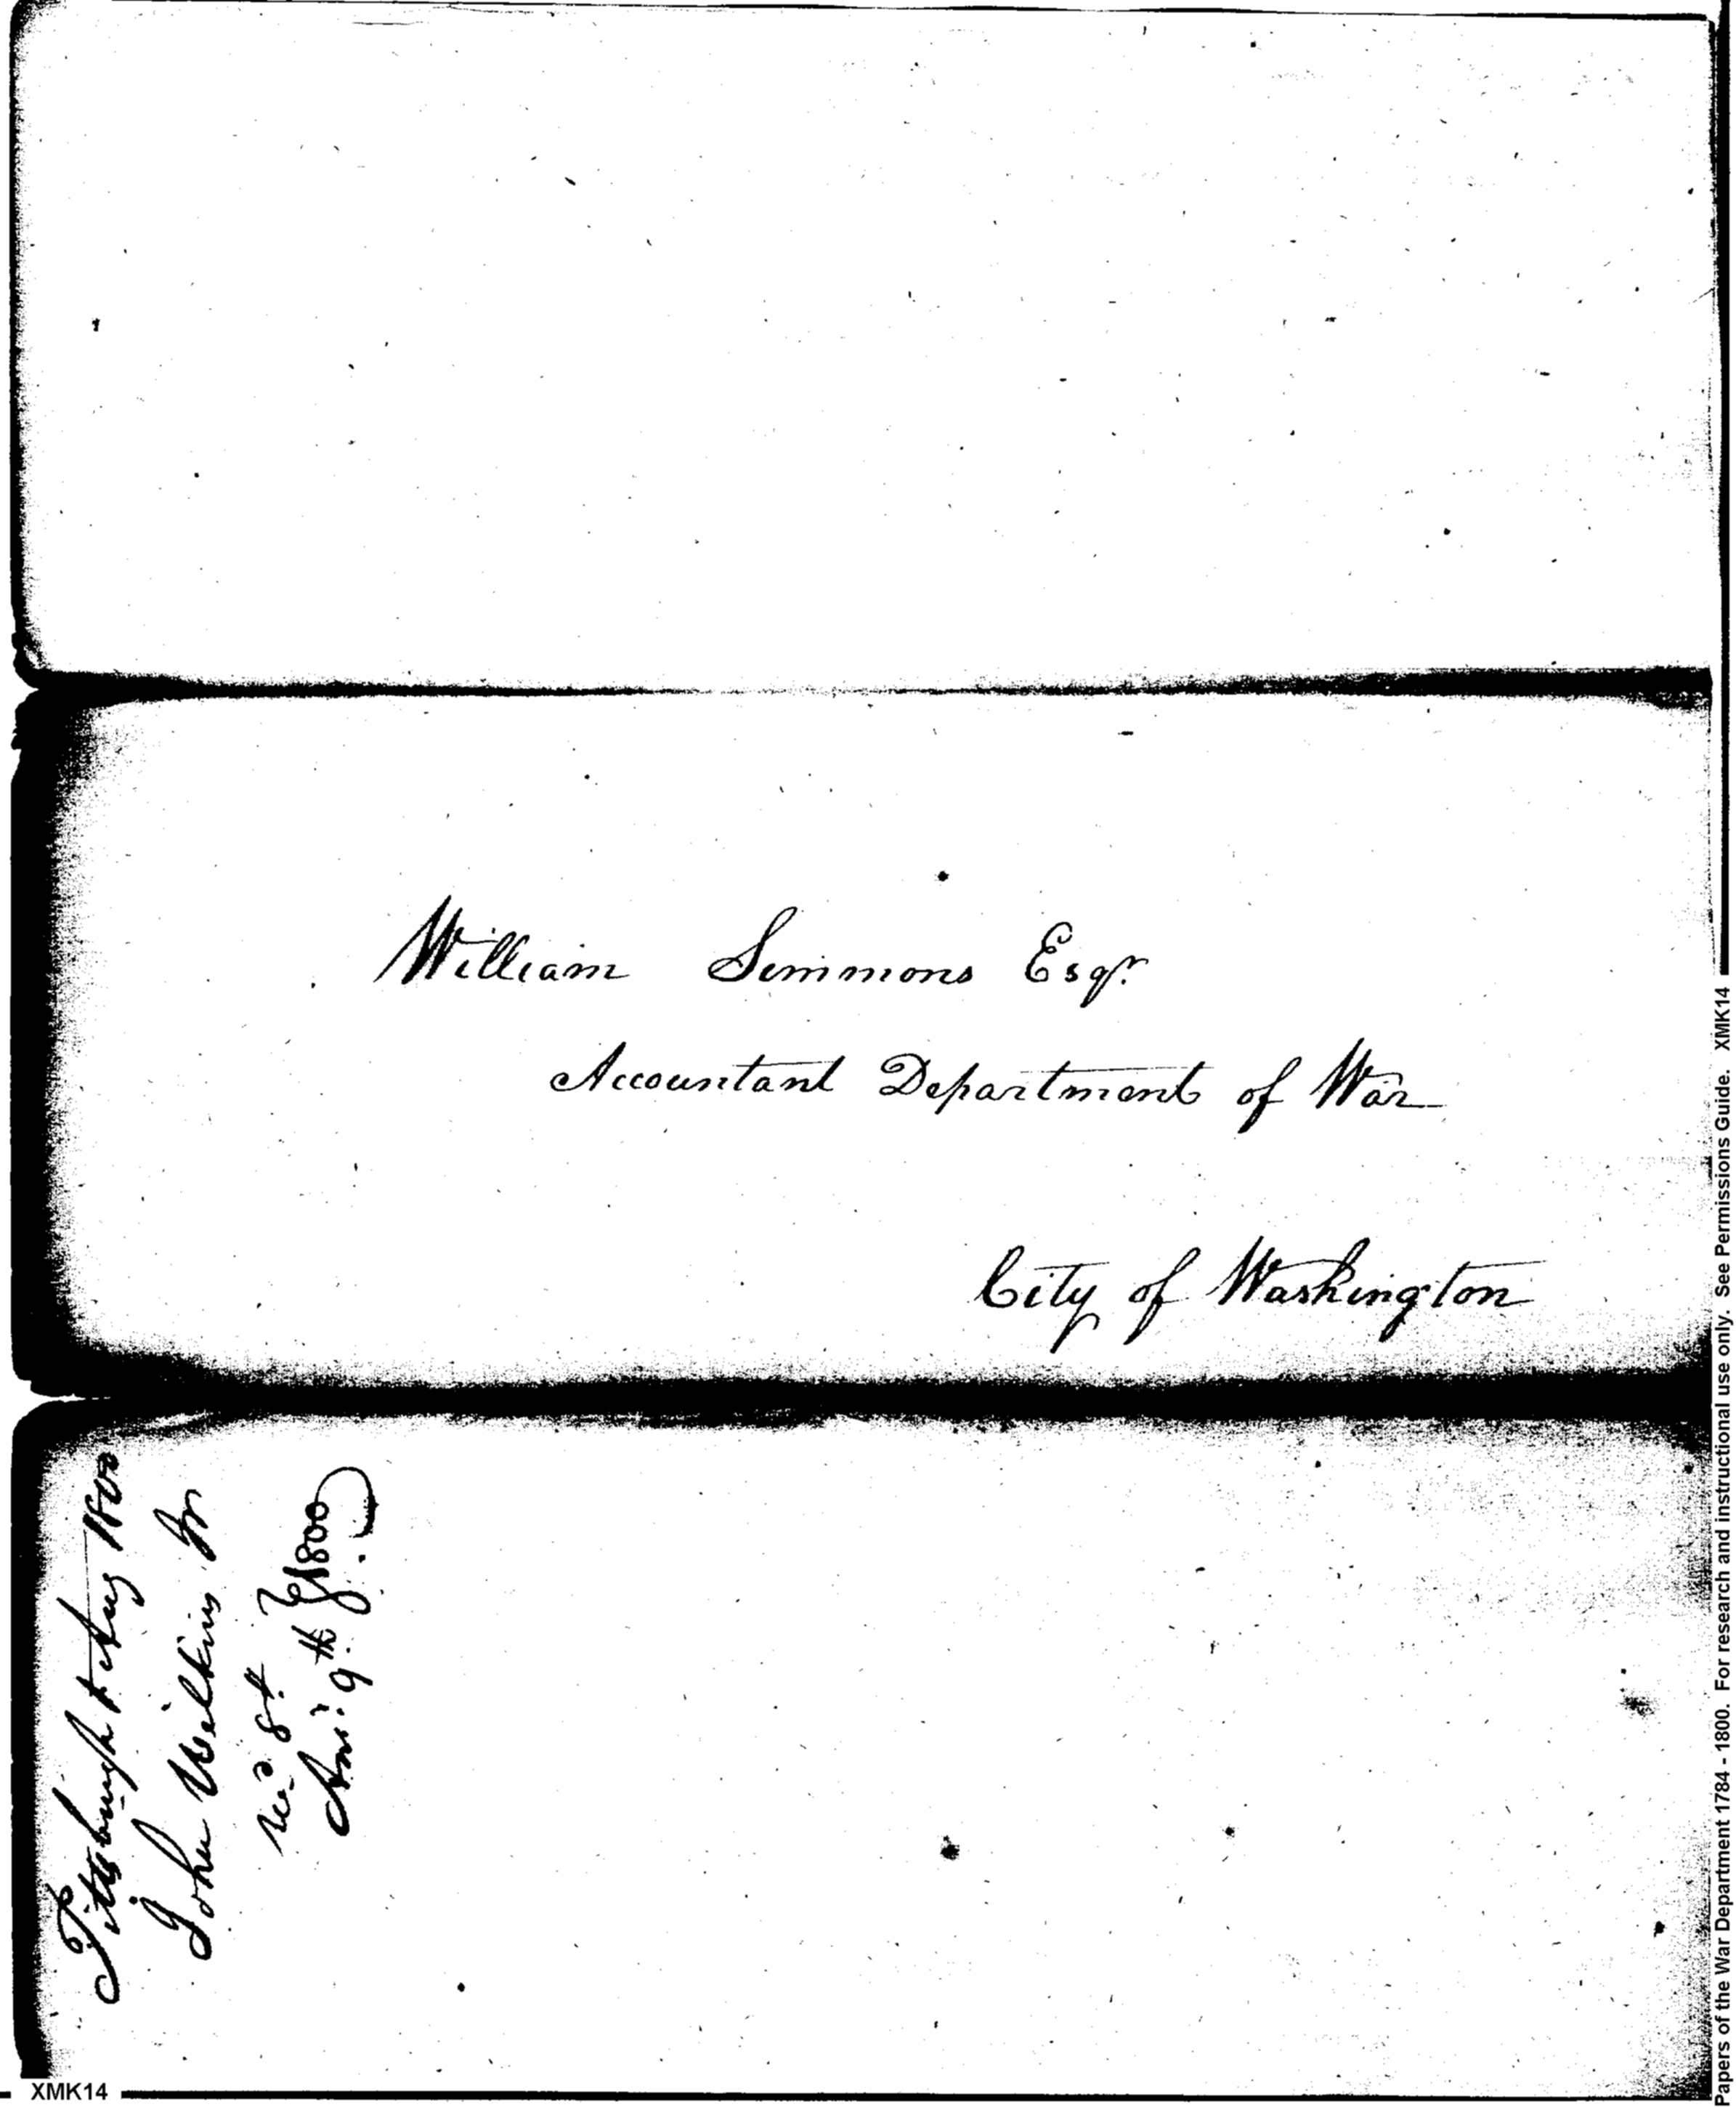 William Simmons Esqr.
Accountant Department of War
City of Washington
Pittsburgh Aug 1800
John Wilkins Jr
Rec'd 8t.
Ans. 9th 1800
XMK14
Papers of the War Department 1784 - 1800. For research and instructional use only. See Permissions Guide. XMK14